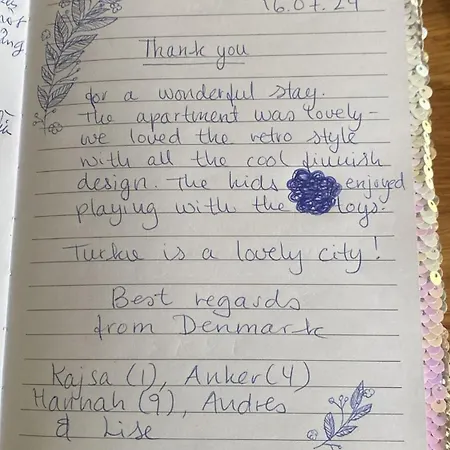 16.07.24
Thank you
for a wonderful stay.
The apartment was lovely -
we loved the retro style
with all the cool finnish
design. The kids enjoyed
playing with the toys.
Turku is a lovely city!
Best regards
from Denmark
Kajsa (1), Anker (4)
Hannah (9), Andres
& Lise